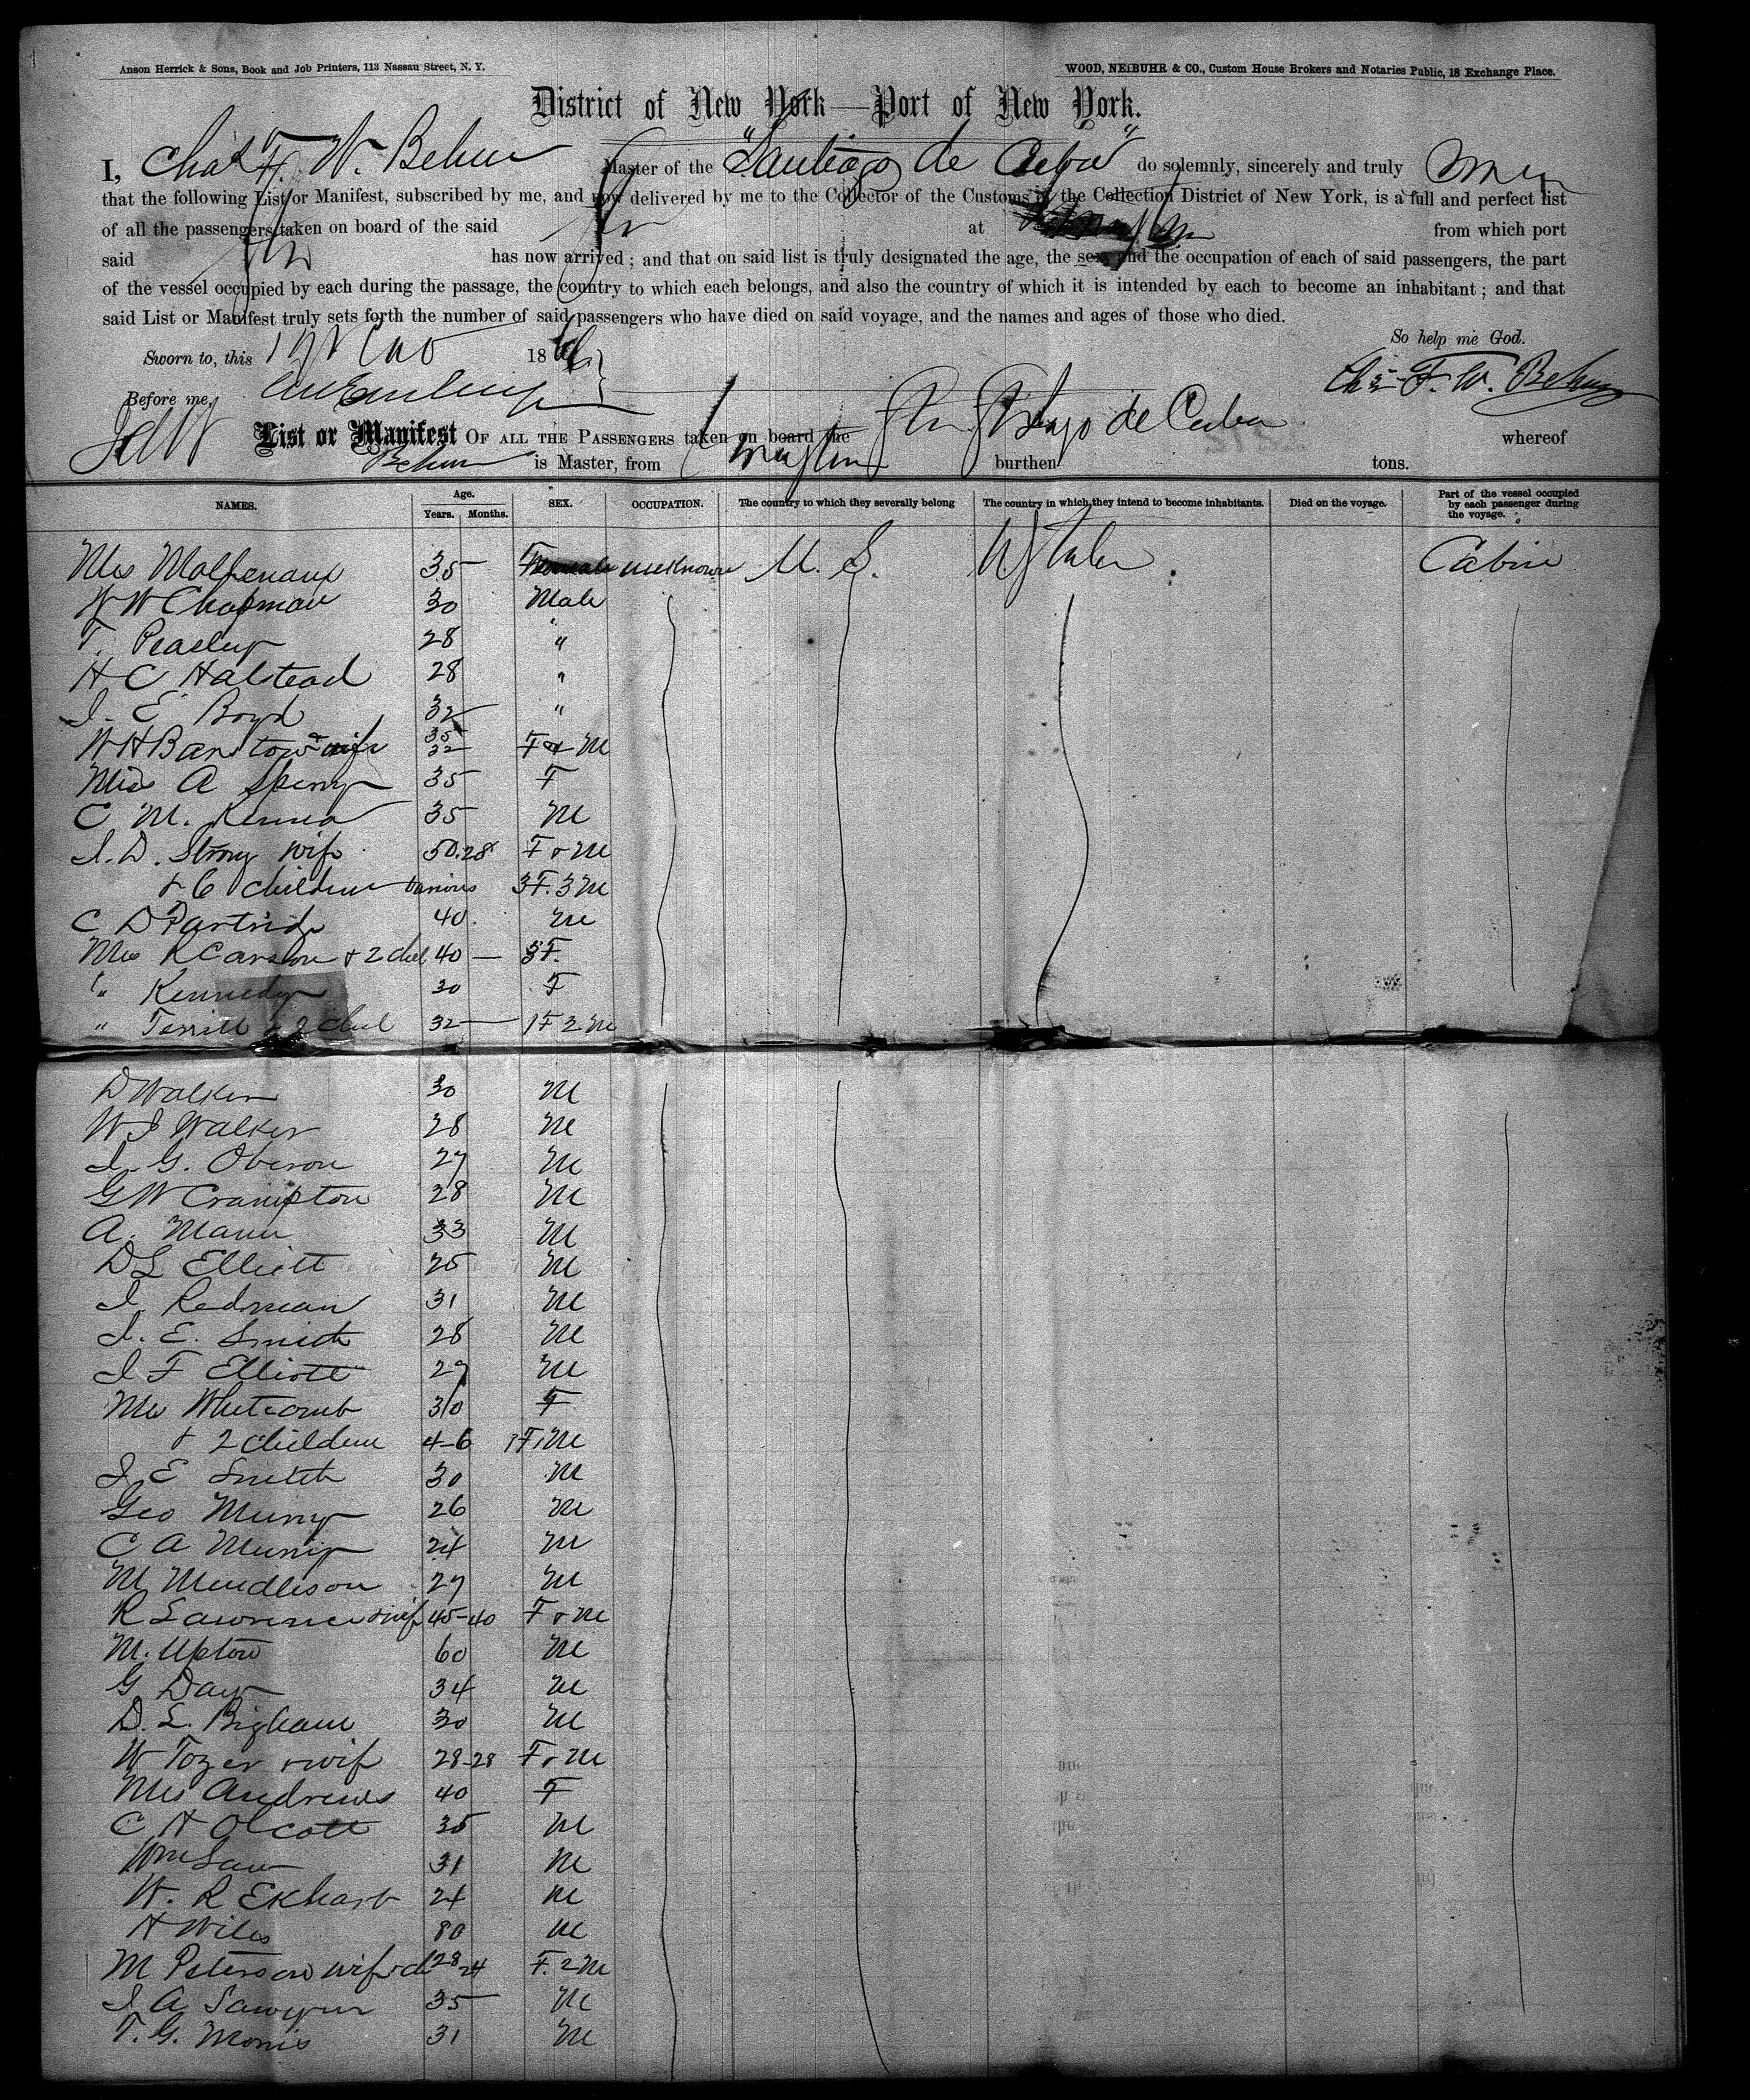 Anson Herrick & Sons, Book and Job Printers, 113 Nassau Street, N. Y.
WOOD, NEIBUHR & CO., Custom House Brokers and Notaries Public, 18 Exchange Place.
District of New York—Port of New York.
I, Chas F. W. Behm Master of the "Santiago de Cuba" do solemnly, sincerely and truly swear
that the following List or Manifest, subscribed by me, and now delivered by me to the Collector of the Customs of the Collection District of New York, is a full and perfect list
of all the passengers taken on board of the said at from which port
said has now arrived; and that on said list is truly designated the age, the sex, and the occupation of each of said passengers, the part
of the vessel occupied by each during the passage, the country to which each belongs, and also the country of which it is intended by each to become an inhabitant; and that
said List or Manifest truly sets forth the number of said passengers who have died on said voyage, and the names and ages of those who died.
So help me God.
Sworn to, this 18
Chas F. W. Behm
Before me,
List or Manifest OF ALL THE PASSENGERS taken on board the de Cuba whereof
Behm is Master, from burthen tons.
NAMES. Age. Years. Months. SEX. OCCUPATION. The country to which they severally belong The country in which they intend to become inhabitants. Died on the voyage. Part of the vessel occupied by each passenger during the voyage.
Mrs 35 Female unknown U. S. Cabin
W W Chapman 30 Male
T. Peasley 28 "
H C Halstead 28 "
J. E Boyd 32 "
W H Barstow & wife 35 32 F & M
Miss A 35 F
C M. 35 M
J. D. Strong wife 50.28 F & M
& 6 children various 3F. 3M
C D Partridge 40 M
Mrs R Carson & 2 chil 40 3F.
" Kennedy 30 F
" Terrill & 2 chil 32 1F 2M
D Walker 30 M
W J Walker 28 M
J. G. Oberon 27 M
G W Crampton 28 M
A. Mann 33 M
D L Elliott 25 M
J. Redman 31 M
J. E. Smith 28 M
J F Elliott 27 M
Mrs Whitcomb 30 F
& 2 children 4-6 1F 1M
J E Smith 30 M
Geo 26 M
C A 24 M
M Mendleson 27 M
R Lawrence & wife 45-40 F & M
M. Upton 60 M
G Day 34 M
D. L. Bigham 30 M
W Tozer & wife 28-28 F & M
Mrs Andrews 40 F
C H Olcott 35 M
Wm Law 31 M
W. R Ekhart 24 M
H Wiles 80 M
M Peterson wife & c 28 24 F. 2M
J A Sawyer 35 M
T. G. Morris 31 M